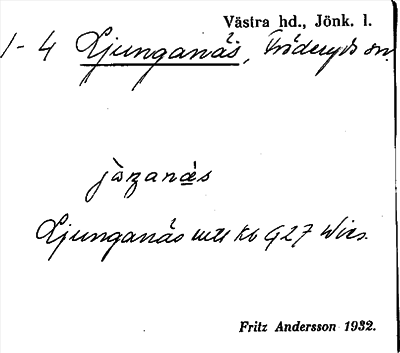 Västra hd., Jönk. l.
1-4 Ljunganäs, Fröderyds sn.
jàzanás
Ljunganäs uti Kb 927 Wics.
Fritz Andersson 1932.